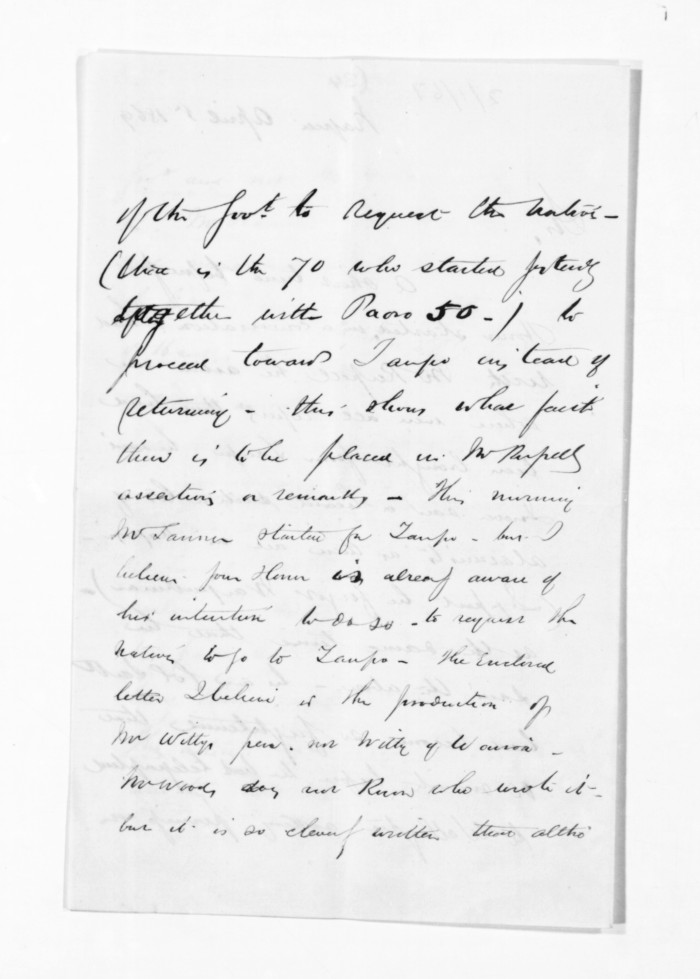 of the Govt. to request the natives -
(that is the 70 who started
together with Paora 50 -) to
proceed towards Taupo instead of
returning - this shows what faith
there is to be placed in Mr Russell's
assertions or remarks - This morning
Mr Tanner started for Taupo - but I
believe your Honor is already aware of
his intention to do so - to request the
natives to go to Taupo - The Enclosed
letter I believe is the production of
Mr Witty's pen. not Witty of Wairoa -
Mr Woods does not know who wrote it -
but it is so cleverly written that altho